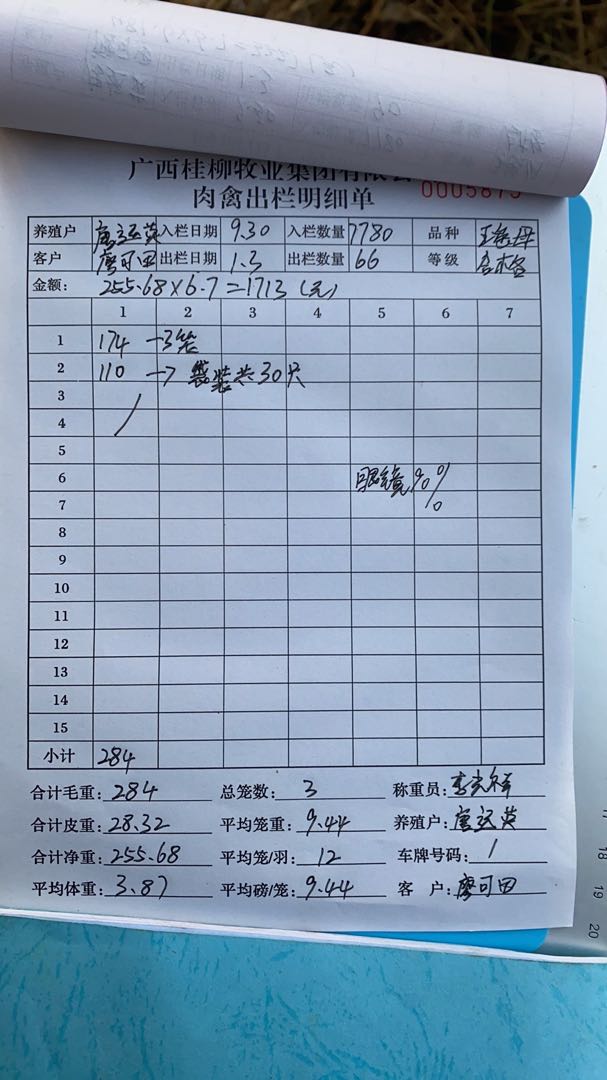 广西桂柳牧业集团有限公
肉禽出栏明细单
000587
养殖户 唐运英 入栏日期 9.30 入栏数量 7780 品种
客户 廖可田 出栏日期 1.3 出栏数量 66 等级 合格
金额: 255.68×6.7=1713(元)
1 2 3 4 5 6 7
1 174 →3笼
2 110 → 袋装共30只
3
4
5
6 眼镜90%
7
8
9
10
11
12
13
14
15
小计 284
合计毛重: 284 总笼数: 3 称重员:
合计皮重: 28.32 平均笼重: 9.44 养殖户: 唐运英
合计净重: 255.68 平均笼/羽: 12 车牌号码: 1
平均体重: 3.87 平均磅/笼: 9.44 客 户: 廖可田
17
18
19
20